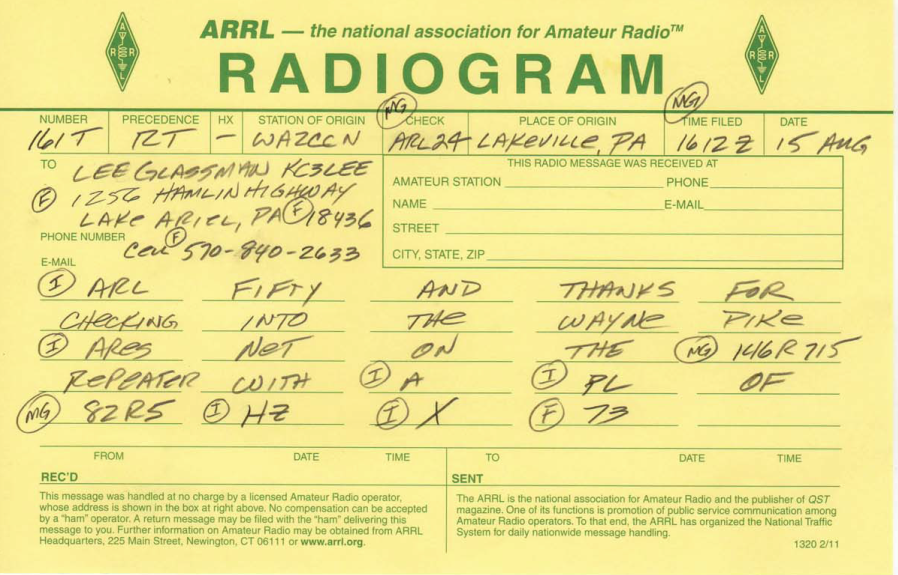 ARRL — the national association for Amateur Radio™
RADIOGRAM
NUMBER PRECEDENCE HX STATION OF ORIGIN MG CHECK PLACE OF ORIGIN MG TIME FILED DATE
161T RT — WA2CCN ARL24 LAKEVILLE, PA 1612Z 15 AUG
TO LEE GLASSMAN KC3LEE
F 1256 HAMLIN HIGHWAY
LAKE ARIEL, PA F 18436
PHONE NUMBER F
Cell 570-840-2633
E-MAIL
THIS RADIO MESSAGE WAS RECEIVED AT
AMATEUR STATION PHONE
NAME E-MAIL
STREET
CITY, STATE, ZIP
I ARL FIFTY AND THANKS FOR
CHECKING INTO THE WAYNE PIKE
I ARES NET ON THE MG 146R715
REPEATER WITH I A I PL OF
MG 82R5 I HZ I X F 73
FROM DATE TIME TO DATE TIME
REC'D SENT
This message was handled at no charge by a licensed Amateur Radio operator,
whose address is shown in the box at right above. No compensation can be accepted
by a "ham" operator. A return message may be filed with the "ham" delivering this
message to you. Further information on Amateur Radio may be obtained from ARRL
Headquarters, 225 Main Street, Newington, CT 06111 or www.arrl.org.
The ARRL is the national association for Amateur Radio and the publisher of QST
magazine. One of its functions is promotion of public service communication among
Amateur Radio operators. To that end, the ARRL has organized the National Traffic
System for daily nationwide message handling.
1320 2/11